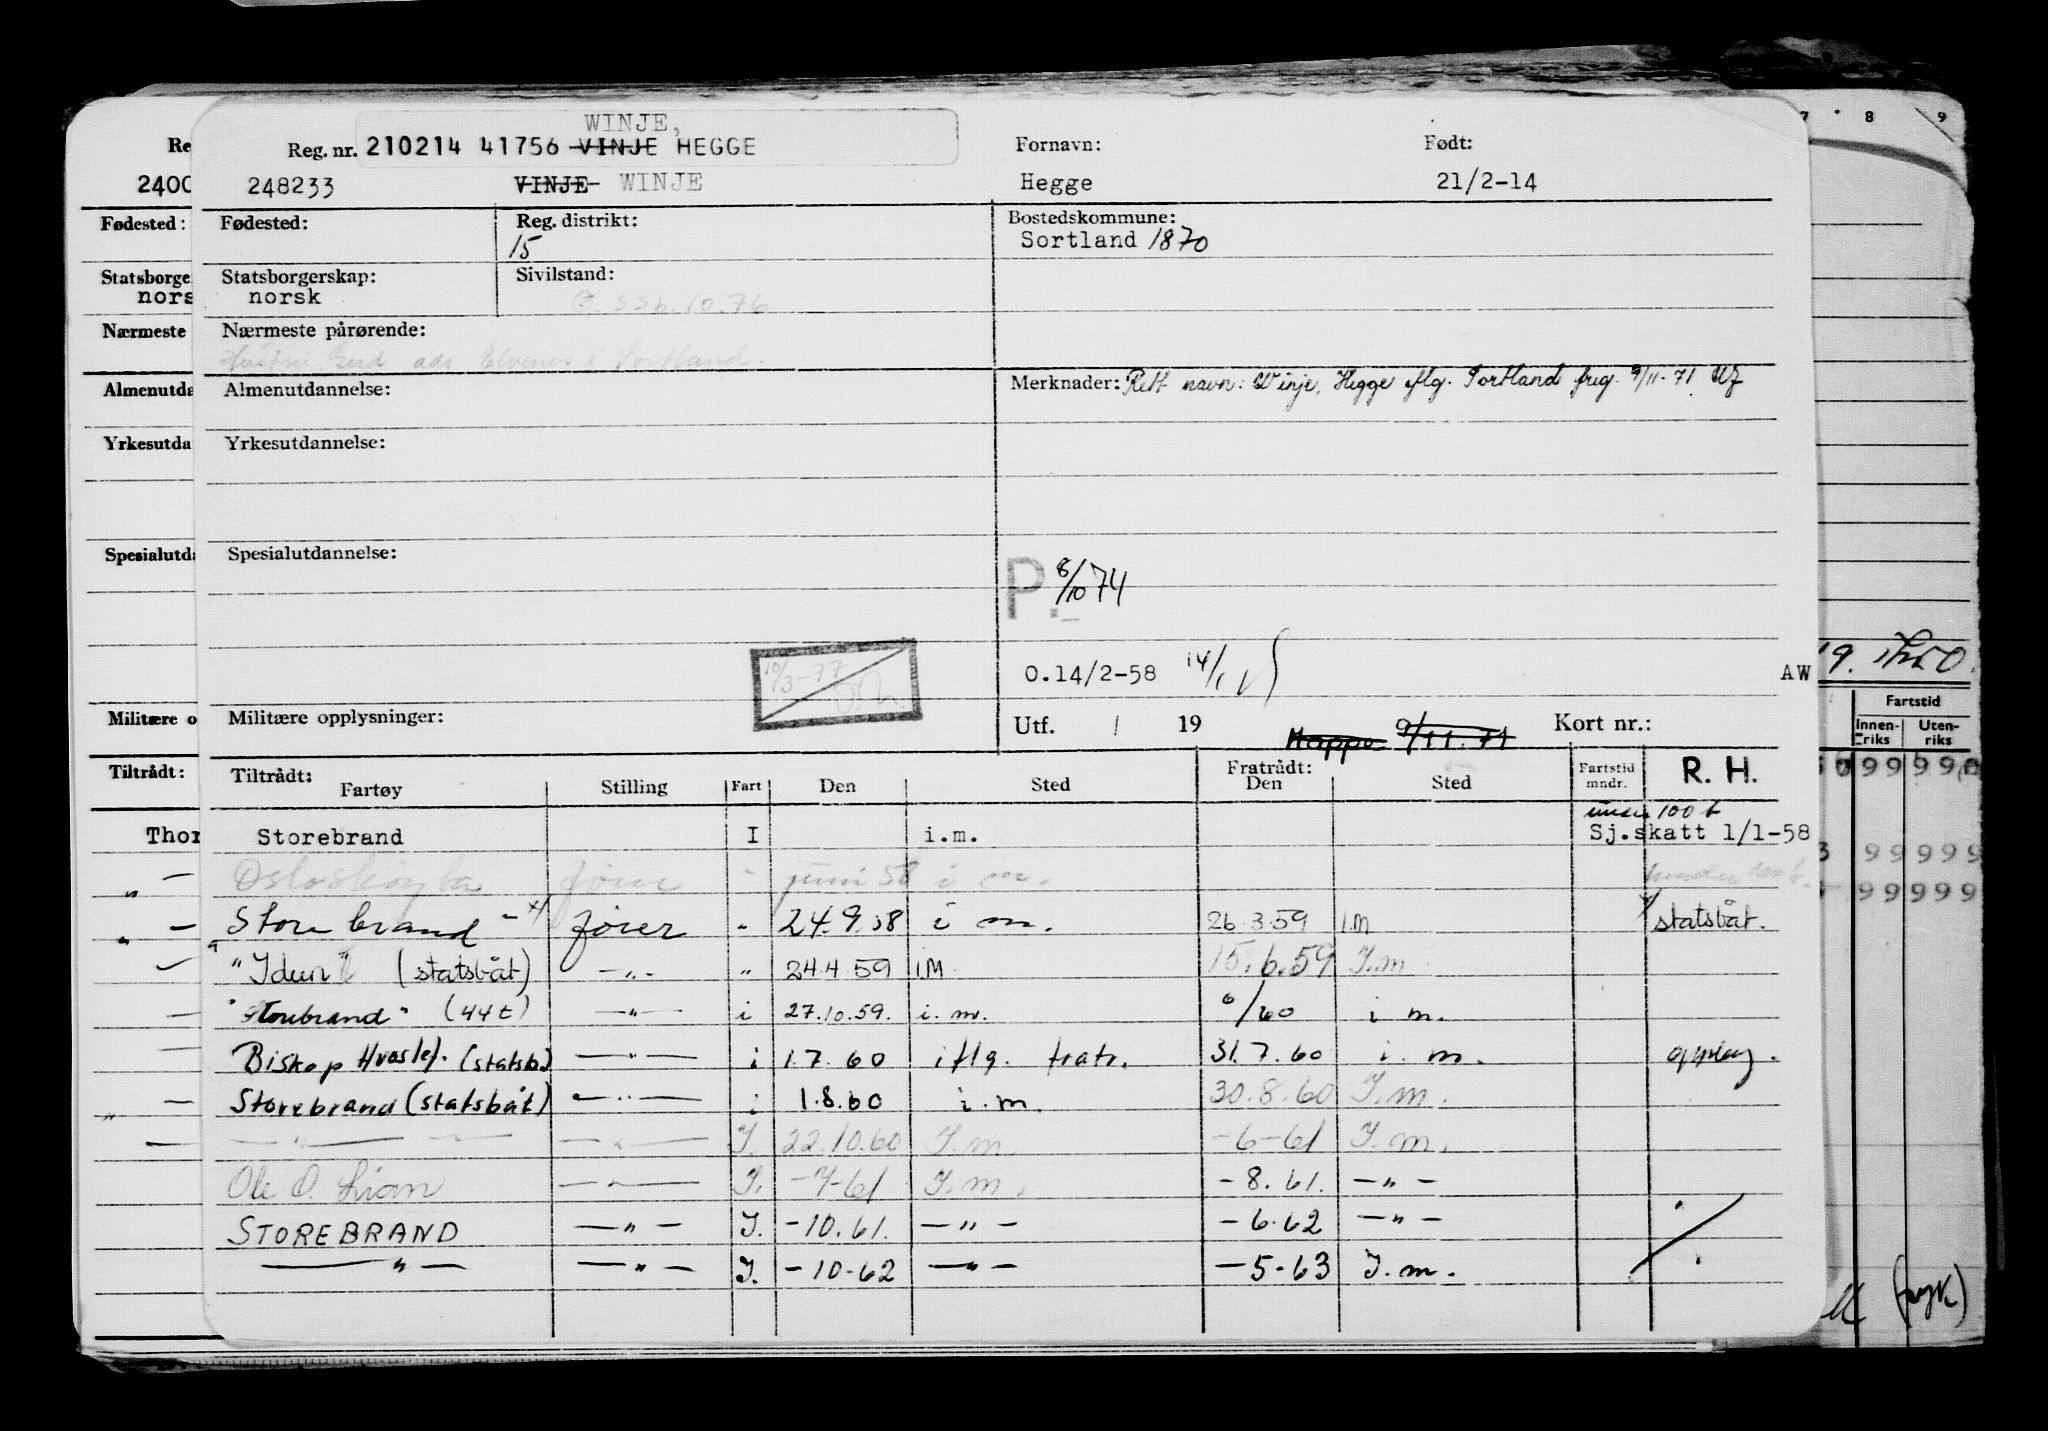 WINJE,
Reg. nr. 210214 41756 VINJE HEGGE
Fornavn:
Født:
248233
VINJE WINJE
Hegge
21/2-14
Fødested:
Reg. distrikt:
15
Bostedskommune:
Sortland 1870
Statsborgerskap:
norsk
Sivilstand:
Nærmeste pårørende:
Hustru Gerd adr Elvenes i Sortland.
Almenutdannelse:
Merknader: Rett navn: Winje, Hegge iflg. Sortland freg. 9/11-71
Yrkesutdannelse:
Spesialutdannelse:
P. 8/10 74
10/3-77
O.14/2-58
AW
Militære opplysninger:
Utf. / 19
Mappe 9/11.71
Kort nr.:
Tiltrådt:
Fartøy
Stilling
Fart
Den
Sted
Fratrådt:
Den
Sted
Fartstid
mndr.
R. H.
under 100 t
Storebrand I i.m. Sj.skatt 1/1-58
Osloskøyta fører " juni 58 i m. under 100 t.
Storebrand x/ fører " 24.9.58 i m. 26.3.59 I.M x/ statsbåt.
"Idun" (statsbåt) —"— " 24.4.59 I.M 15.6.59 I.m
"Storebrand" (44t) —"— i 27.10.59. i. m. 6/60 i m.
Biskop Hvoslef. (statsb) —"— i 1.7.60 iflg. fratr. 31.7.60 i. m. opplag.
Storebrand (statsbåt) —"— i 1.8.60 i.m. 30.8.60 I.m.
—"— —"— I. 22.10.60 I.m. -6-61 I.m.
Ole O. Lian —"— I. -7-61 I.m. -8.61. —"—
STOREBRAND —"— I. -10.61. —"— -6.62 —"—
—"— —"— I. -10-62 —"— -5-63 I.m.
Re
2400
Fødested:
Statsborge
nors
Nærmeste
Almenutda
Yrkesutda
Spesialutda
Militære o
Tiltrådt:
Thor
7 8 9
Fartstid
Innen-
riks
Uten-
riks